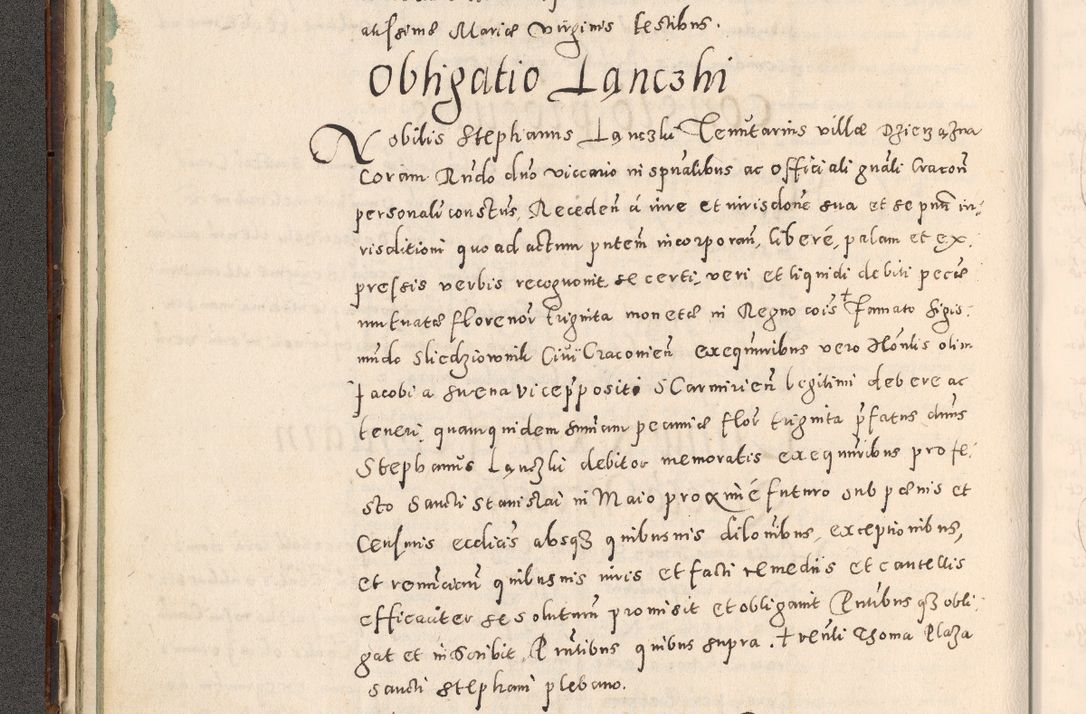 atissime Mariæ virginis testibus.
Obligatio Lanczki
Nobilis Stephanus Lanczki Tenutarius villæ Dzierzązna
Coram Rndo dno viccario in spualibus ac officiali gnali Cracoñ
personali constus, Receden a iure et iurisdone sua et se pnti iu:
risditioni quo ad actum pntem incorporan, libere, palam et ex,
pressis verbis recognouit, se certi, veri et liquidi debiti peciæ
mutuatæ florenor triginta monetæ in Regno cois + Famato Sigis:
mundo Sliedziownik Ciui Cracouien exequutribus vero Honlis olim
Jacobi a Suena vicepposito S Carmirien legitimi debere ac
teneri, quamquidem summam pecuniæ flor triginta pfatus dnus
Stephanus Lanczki debitor memoratis exequutribus profe:
sto Sancti Stanislai in Maio proxime futuro sub pœnis et
Censuris ecclicis absqz quibusuis dilonibus, exceptionibus,
et renunciann quibusuis iuris et facti remediis et cautellis
efficaciter se soluturum promisit et obligauit Pntibus qz obli:
gat et inscribit, Pntibus quibus supra. + venli Thoma Plaza
sancti Stephani plebano.